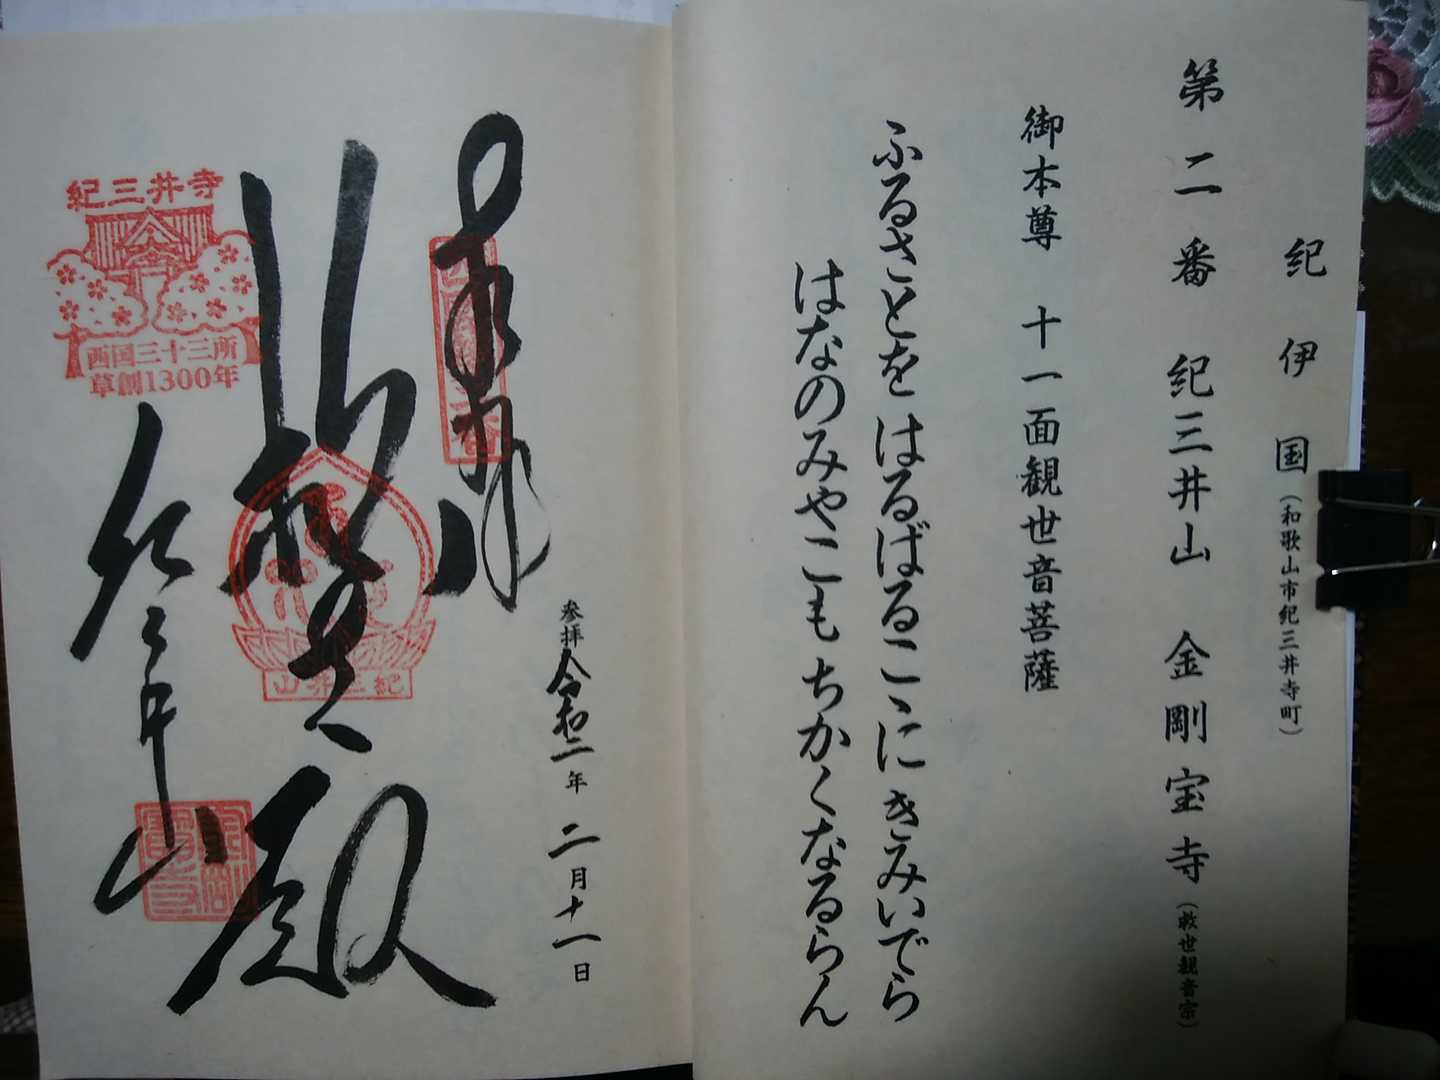 紀伊国(和歌山市紀三井寺町)
第二番 紀三井山 金剛宝寺(救世観音宗)
御本尊 十一面観世音菩薩
ふるさとを はるばるこゝに きみいでら
はなのみやこも ちかくなるらん
奉拝
参拝 令和二年 二月十一日
救世殿
紀三井山
紀三井寺
西国三十三所
草創1300年
紀三井山